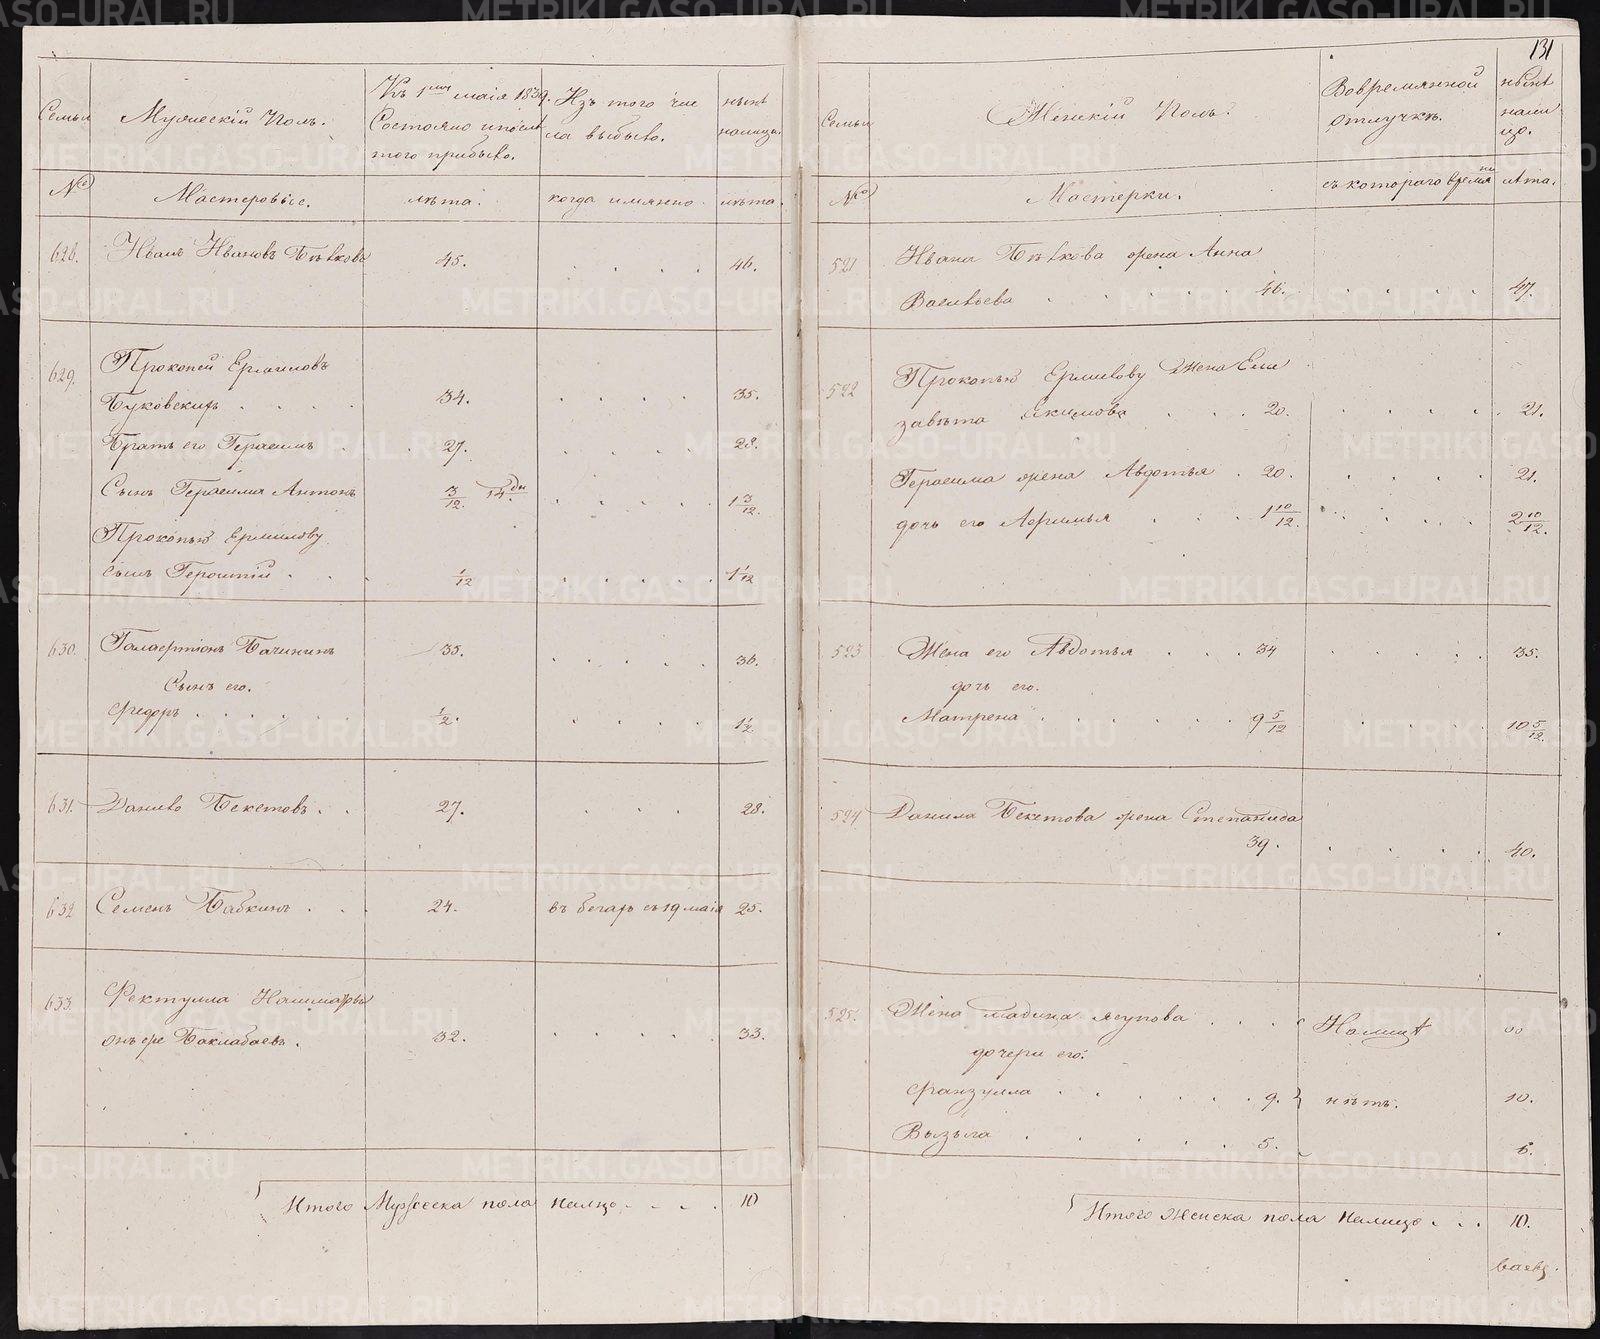 131
Семьи
Мужескій Полъ.
Къ 1му маія 1839.
Состояло и после
того прибыло.
Изъ того чис
ла выбыло.
нынѣ
налицо.
№
Мастеровые.
лѣта.
когда имянно
лѣта.
628.
Иванъ Ивановъ Бѣлковъ
45.
46.
629.
Прокопей Ермиловъ
Буковскихъ
34.
35.
Братъ его Герасимъ
27.
28.
Сынъ Герасима Антонъ
3/12. 14 дн
1 3/12.
Прокопья Ермилову
сынъ
1/12
1 1/12
630.
Бачининъ
35.
36.
Сынъ его.
Федоръ
1/2.
1 1/2
631.
Данило Бекетовъ
27.
28.
632
Семенъ Бабкинъ
24.
въ бегахъ съ 19 маія
25.
633
онъ же Баклабаевъ.
32.
33.
Итого Мужеска пола налицо
10
Семьи
Женскій Полъ.
Вовремянной
отлучкѣ.
нынѣ
нали
цо.
№
Мастерки.
съ котораго время
ни
лѣта.
521
Ивана Бѣлкова жена Анна
Васильева
46.
47.
522
Прокопья Ермилову жена Ели
завѣта Екимова
20.
21.
Герасима жена Авдотья
20.
21.
дочь его
1 10/12.
2 10/12.
523
Жена его Авдотья
34
35.
дочь его.
Матрена
9 5/12
10 5/12.
524
Данила Бекетова жена Степанида
39.
40.
525.
Жена Мадина Ясупова
00
дочери его:
9.
нѣтъ.
10.
5.
6.
Итого женска пола налицо
10.
METRIKI.GASO-URAL.RU